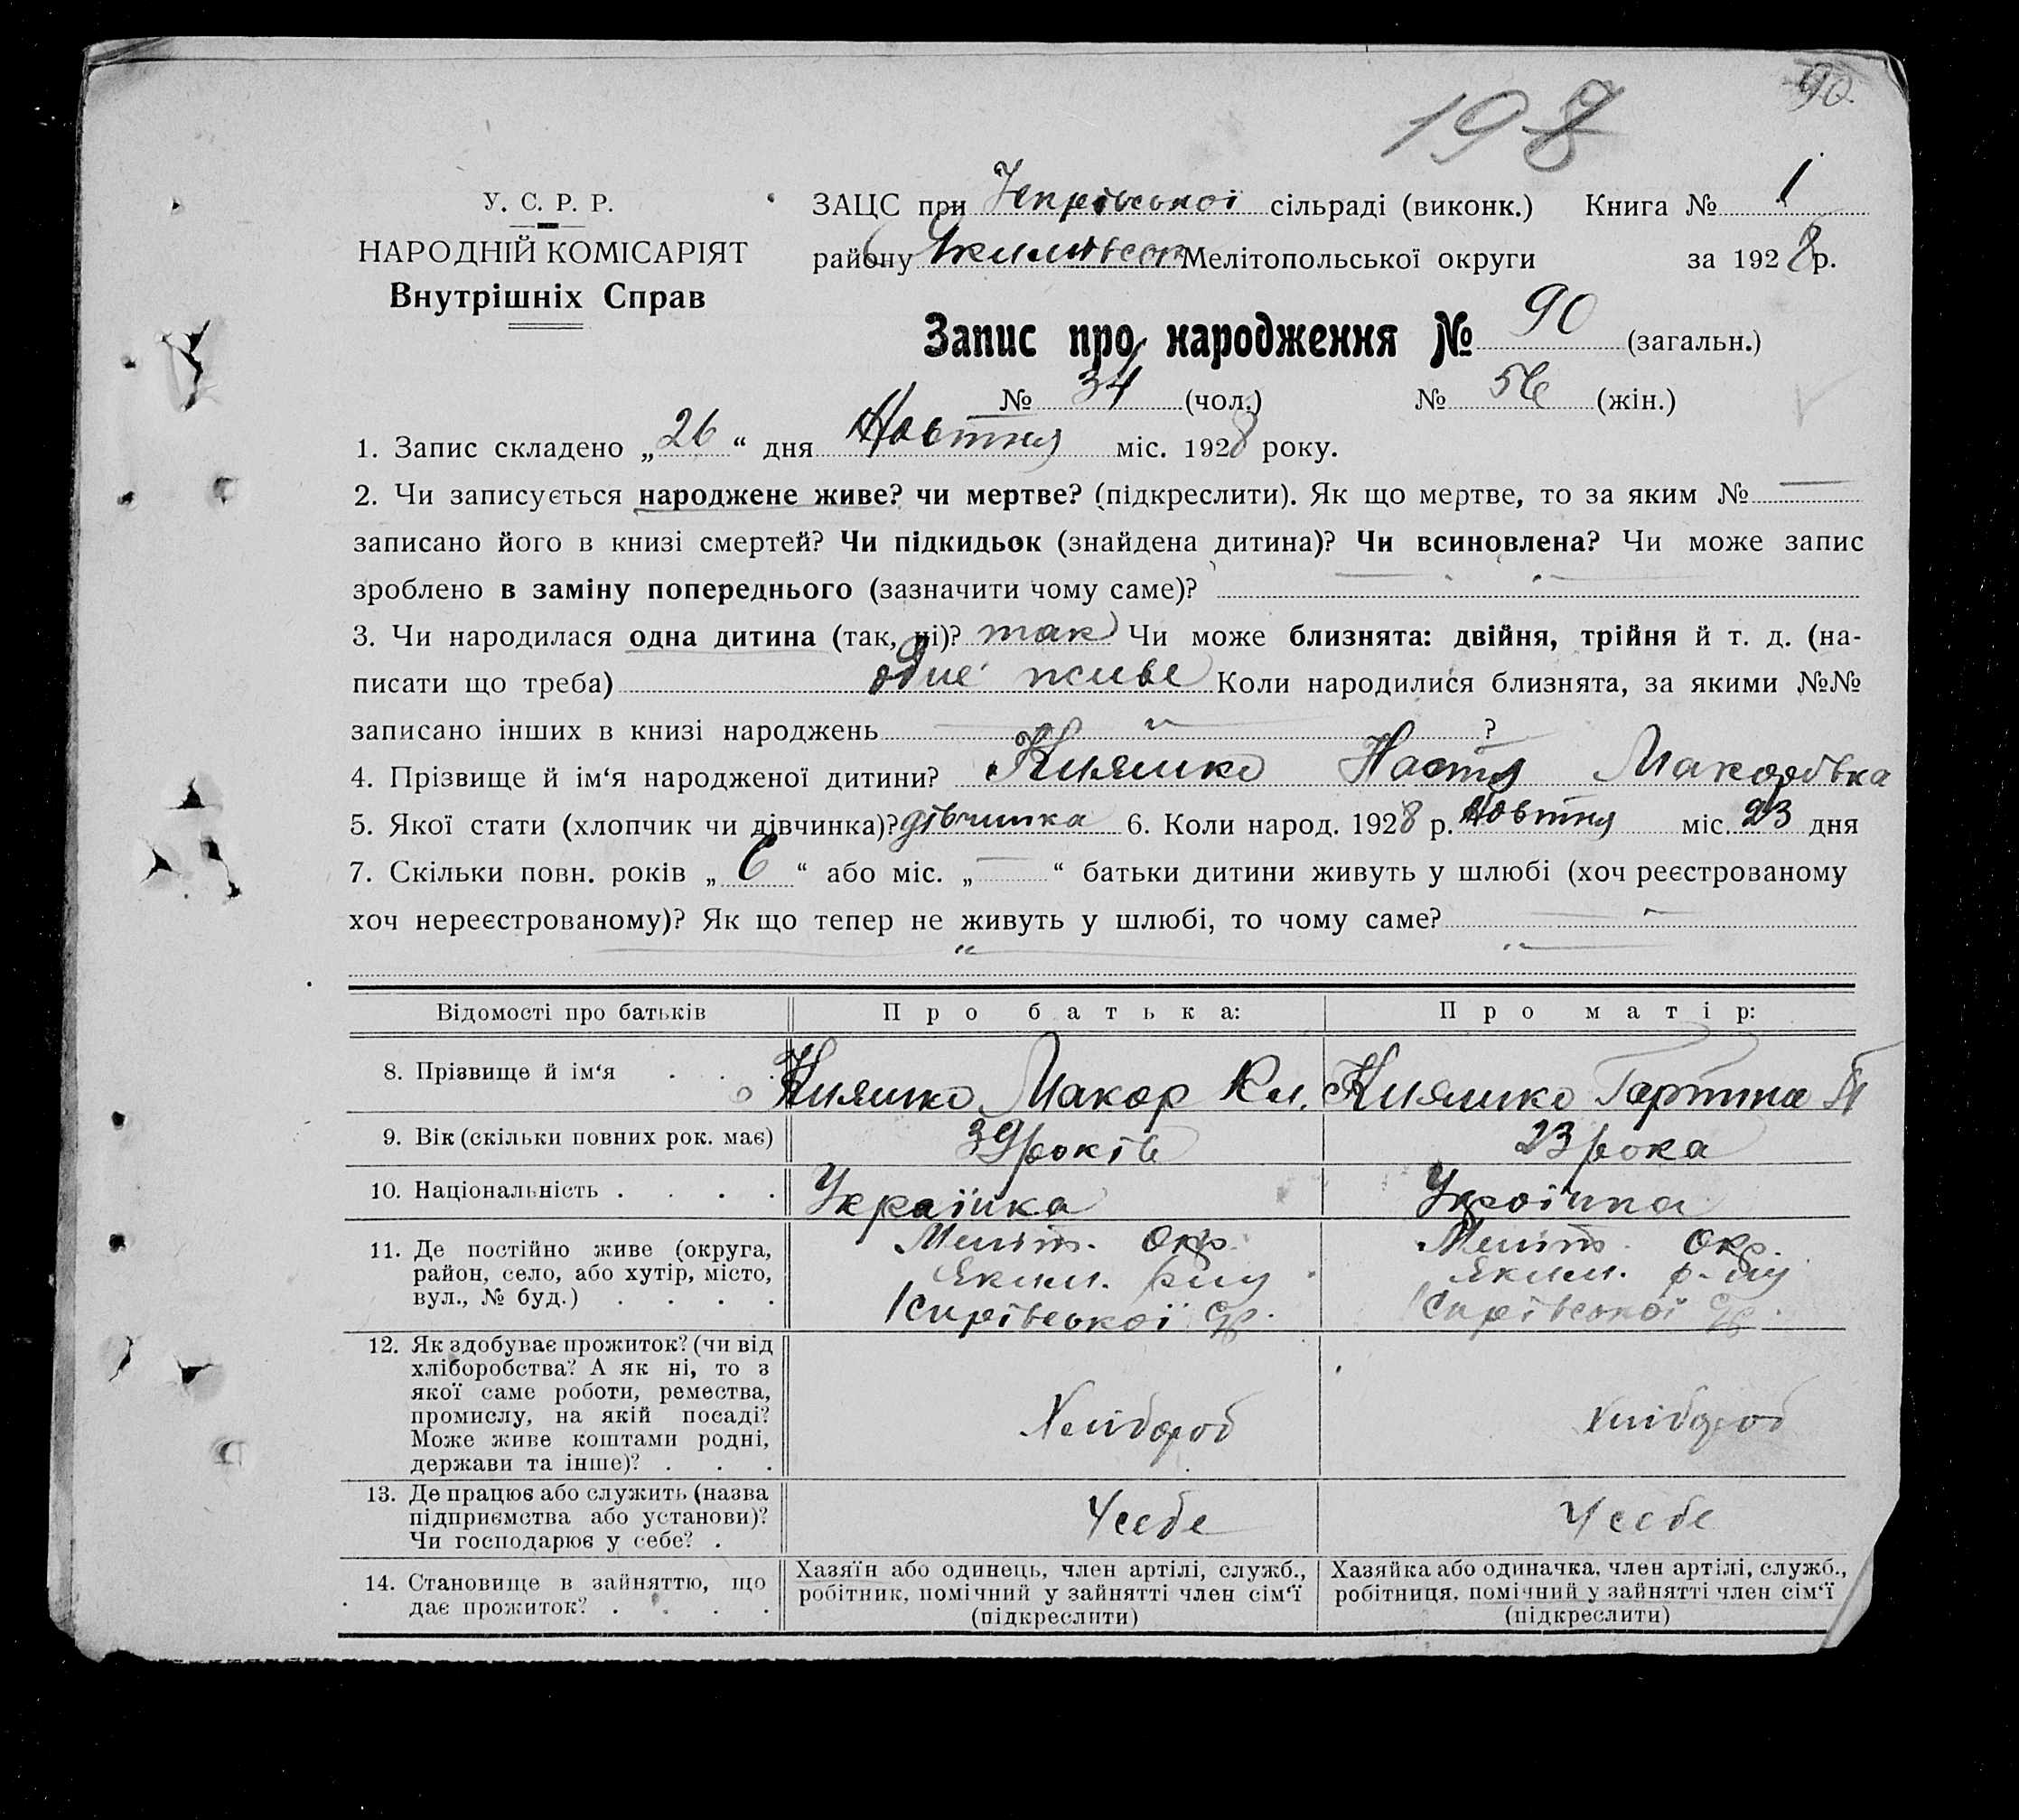 90.
198
У. С. Р. Р.
НАРОДНІЙ КОМІСАРІЯТ
Внутрішніх Справ
ЗАЦС при сільраді (виконк.) Книга № 1
району Мелітопольської округи за 1928 р.
Запис про народження № 90 (загальн.)
№ 34 (чол.) № 56 (жін.)
1. Запис складено „ 26 “ дня Жовтня міс. 1928 року.
2. Чи записується народжене живе? чи мертве? (підкреслити). Як що мертве, то за яким № —
записано його в книзі смертей? Чи підкидьок (знайдена дитина)? Чи всиновлена? Чи може запис
зроблено в заміну попереднього (зазначити чому саме)?
3. Чи народилася одна дитина (так, ні)? так Чи може близнята: двійня, трійня й т. д. (на-
писати що треба) одне живе Коли народилися близнята, за якими №№
записано інших в книзі народжень ?
4. Прізвище й ім‘я народженої дитини? Кияшко Настя Макорівка
5. Якої стати (хлопчик чи дівчинка)? дівчинка 6. Коли народ. 1928 р. Жовтня міс. 23 дня
7. Скільки повн. років „ 6 “ або міс. „ — “ батьки дитини живуть у шлюбі (хоч реєстрованому
хоч нереєстрованому)? Як що тепер не живуть у шлюбі, то чому саме?
Відомості про батьків Про батька: Про матір:
8. Прізвище й ім‘я . . . Кияшко Макор Кл. Кияшко Гартина П
9. Вік (скільки повних рок. має) 39 років 23 рока
10. Національність . . . . Українка Українка
11. Де постійно живе (округа, Меліт. Окр. Меліт. Окр.
район, село, або хутір, місто, Яким. р-ну Яким. р-ну
вул., № буд.) . . . . Кирівської Ср. Кирівської Ср.
12. Як здобуває прожиток? (чи від
хліборобства? А як ні, то з
якої саме роботи, ремества,
промислу, на якій посаді? Хлібороб Хлібороб
Може живе коштами родні,
держави та інше)? . . .
13. Де працює або служить (назва
підприємства або установи)? У себе У себе
Чи господарює у себе? .
14. Становище в зайняттю, що Хазяїн або одинець, член артілі, служб., Хазяйка або одиначка, член артілі, служб.,
дає прожиток? . . . . робітник, помічний у зайнятті член сім‘ї робітниця, помічний у зайнятті член сім‘ї
(підкреслити) (підкреслити)